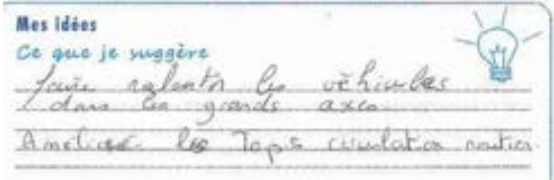 Mes idées
Ce que je suggère
faire ralentir les véhicules
dans les grands axes
Améliorer les Tops circulation routier